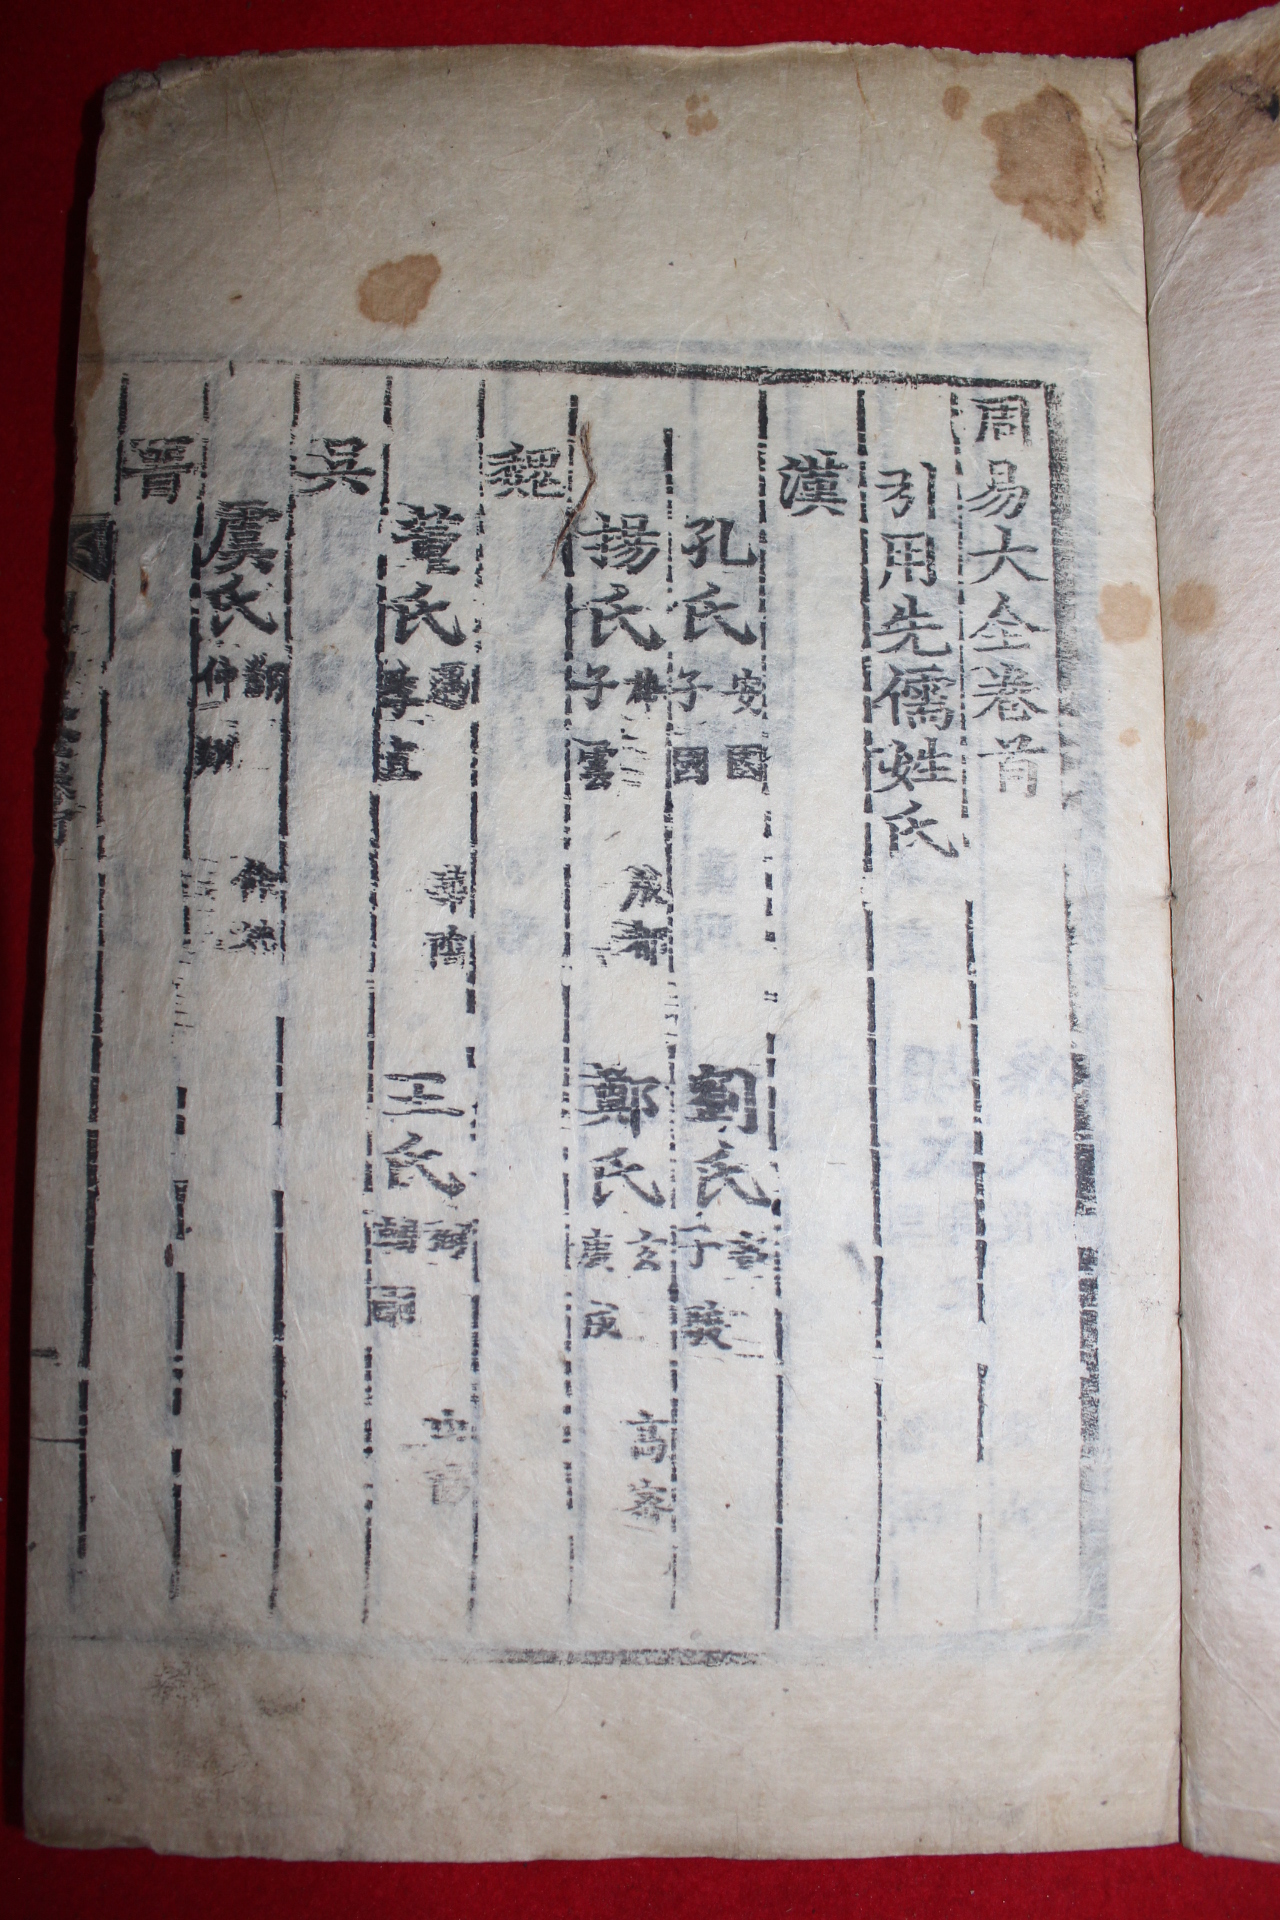 周易大全卷首
引用先儒姓氏
漢
孔氏 安國 子國 劉氏 子
揚氏 子雲 成都 鄭氏 玄 康成 高密
魏
董氏 遇 季直 華陰 王氏 弼 輔嗣 山
吳
虞氏 翻 仲翔 餘姚
晉